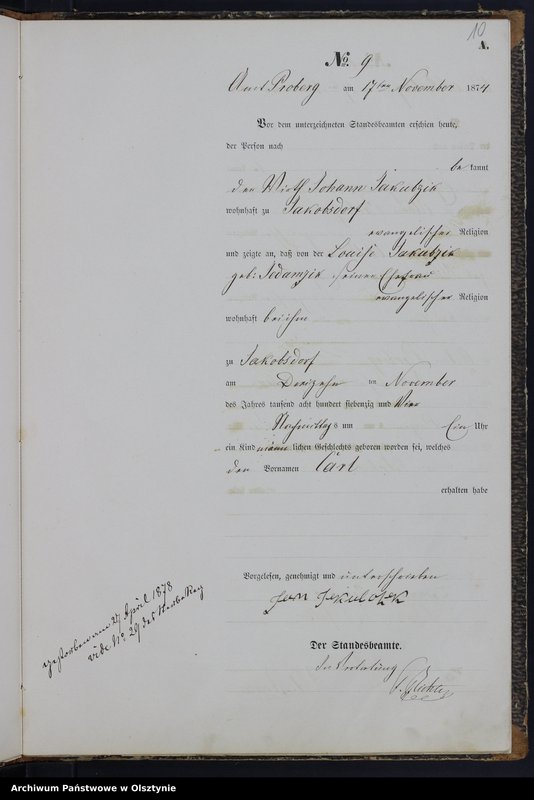 10
A.
No 9
Amt Proberg am 17ten November 1874
Vor dem unterzeichneten Standesbeamten erschien heute,
der Person nach
be kannt
der Wirth Johann Jakubzik
wohnhaft zu Jakobsdorf
evangelischer Religion
und zeigte an, daß von der Louise Jakubzik
geb: seiner Ehefrau
evangelischer Religion
wohnhaft bei ihm
zu Jakobsdorf
am ten November
des Jahres tausend acht hundert siebenzig und Vier
Nachmittags um Ein Uhr
ein Kind männ lichen Geschlechts geboren worden sei, welches
den Vornamen Carl
erhalten habe
Vorgelesen, genehmigt und unterschrieben
Der Standesbeamte.
In Vertretung
gestorben am 27 April 1878
vide No 29 des Sterbe Reg
Archiwum Państwowe w Olsztynie